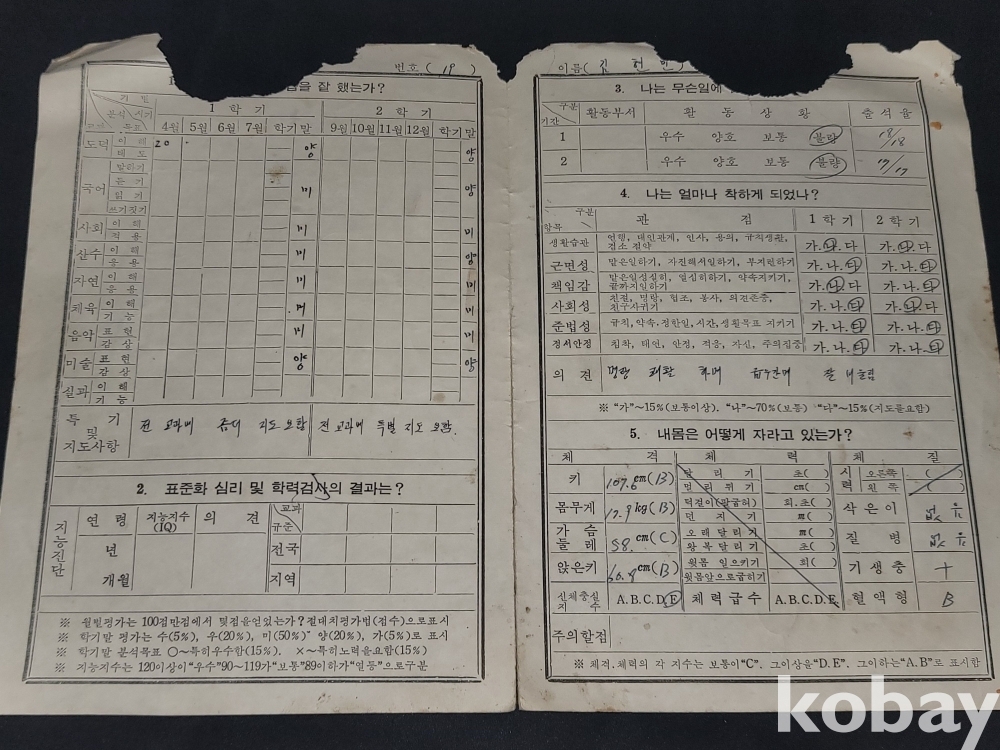 번호( 19 )
을 잘 했는가?
1 학 기
2 학 기
4월 5월 6월 7월 학기말 9월 10월 11월 12월 학기말
도덕 이해 20 양 양
태도
말하기
국어 듣기 미 양
읽기
쓰기짓기
사회 이해 미 미
적용
산수 이해 미 양
응용
자연 이해 미 미
응용
체육 이해 미 미
기능
음악 표현 미 미
감상
미술 표현 양 양
감상
실과 이해
기능
특기 및 지도사항
전 교과에 지도 요함
전 교과에 특별 지도 요함.
2. 표준화 심리 및 학력검사의 결과는?
지능진단
연령 지능지수(IQ) 의견 교과 규준
년 전국
개월 지역
※ 월별평가는 100점만점에서 몇점을얻었는가? 절대치평가법(점수)으로표시
※ 학기말 평가는 수(5%), 우(20%), 미(50%) 양(20%), 가(5%)로 표시
※ 학기말 분석목표 ○~특히우수함(15%). ×~특히노력을요함(15%)
※ 지능지수는 120이상이 "우수" 90~119가 "보통" 89이하가 "열등"으로구분
이름( 김
3. 나는 무슨일에
구분 기간 활동부서 활 동 상 황 출 석 율
1 우수 양호 보통 불량 18/18
2 우수 양호 보통 불량 17/17
4. 나는 얼마나 착하게 되었나?
구분 항목 관 점 1 학 기 2 학 기
생활습관 언행, 대인관계, 인사, 용의, 규칙생활, 검소 절약 가.나.다 가.나.다
근면성 맡은일하기, 자진해서일하기, 부지런하기 가.나.다 가.나.다
책임감 맡은일성실히, 열심히하기, 약속지키기, 끝까지일하기 가.나.다 가.나.다
사회성 친절, 명랑, 협조, 봉사, 의견존중, 친구사귀기 가.나.다 가.나.다
준법성 규칙, 약속, 정한일, 시간, 생활목표 지키기 가.나.다 가.나.다
정서안정 침착, 태연, 안정, 적응, 자신, 주의집중 가.나.다 가.나.다
의 견 명랑 쾌활 하며 잘
※ "가"~15%(보통이상). "나"~70%(보통) "다"~15%(지도를요함)
5. 내몸은 어떻게 자라고 있는가?
체 격 체 력 체 질
키 107.6 cm(B) 달리기 초( ) 시력 오른쪽 ( )
멀리뛰기 cm( ) 왼쪽 ( )
몸무게 17.9 kg(B) 턱걸이(팔굽혀) 회.초( ) 삭은이 없음
던지기 m( )
가슴둘레 58. cm(C) 오래달리기 m( ) 질병 없음
왕복달리기 초( )
앉은키 60.9 cm(B) 윗몸 일으키기 회( ) 기생충 +
윗몸앞으로굽히기
신체충실지수 A.B.C.D.E 체력급수 A.B.C.D.E 혈액형 B
주의할점
※ 체격.체력의 각 지수는 보통이"C". 그이상을"D.E". 그이하는"A.B"로 표시함
kobay